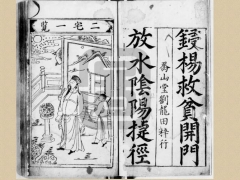 鋟楊救貧開門
喬山堂劉龍田梓行
放水陰陽捷徑
二宅一覽